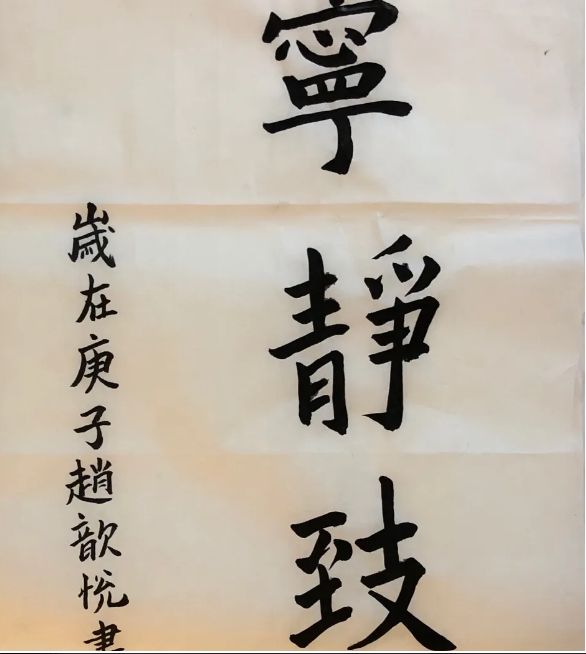 寧靜致
歲在庚子趙歆悅書